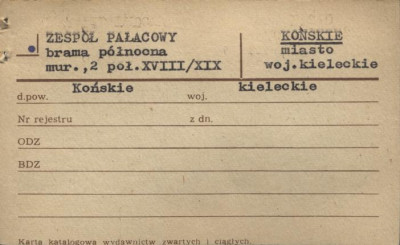 ZESPÓŁ PAŁACOWY
brama północna
mur.,2 poł.XVIII/XIX
KOŃSKIE
miasto
woj.kieleckie
d.pow. Końskie woj. kieleckie
Nr rejestru z dn.
ODZ
BDZ
Karta katalogowa wydawnictw zwartych i ciągłych.